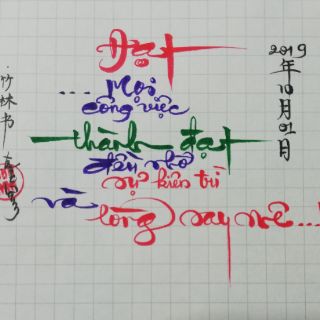 Đạt
... Mọi
công việc
thành đạt
đều nhờ
sự kiên trì
và lòng say mê...!
2019年10月01日
竹林书